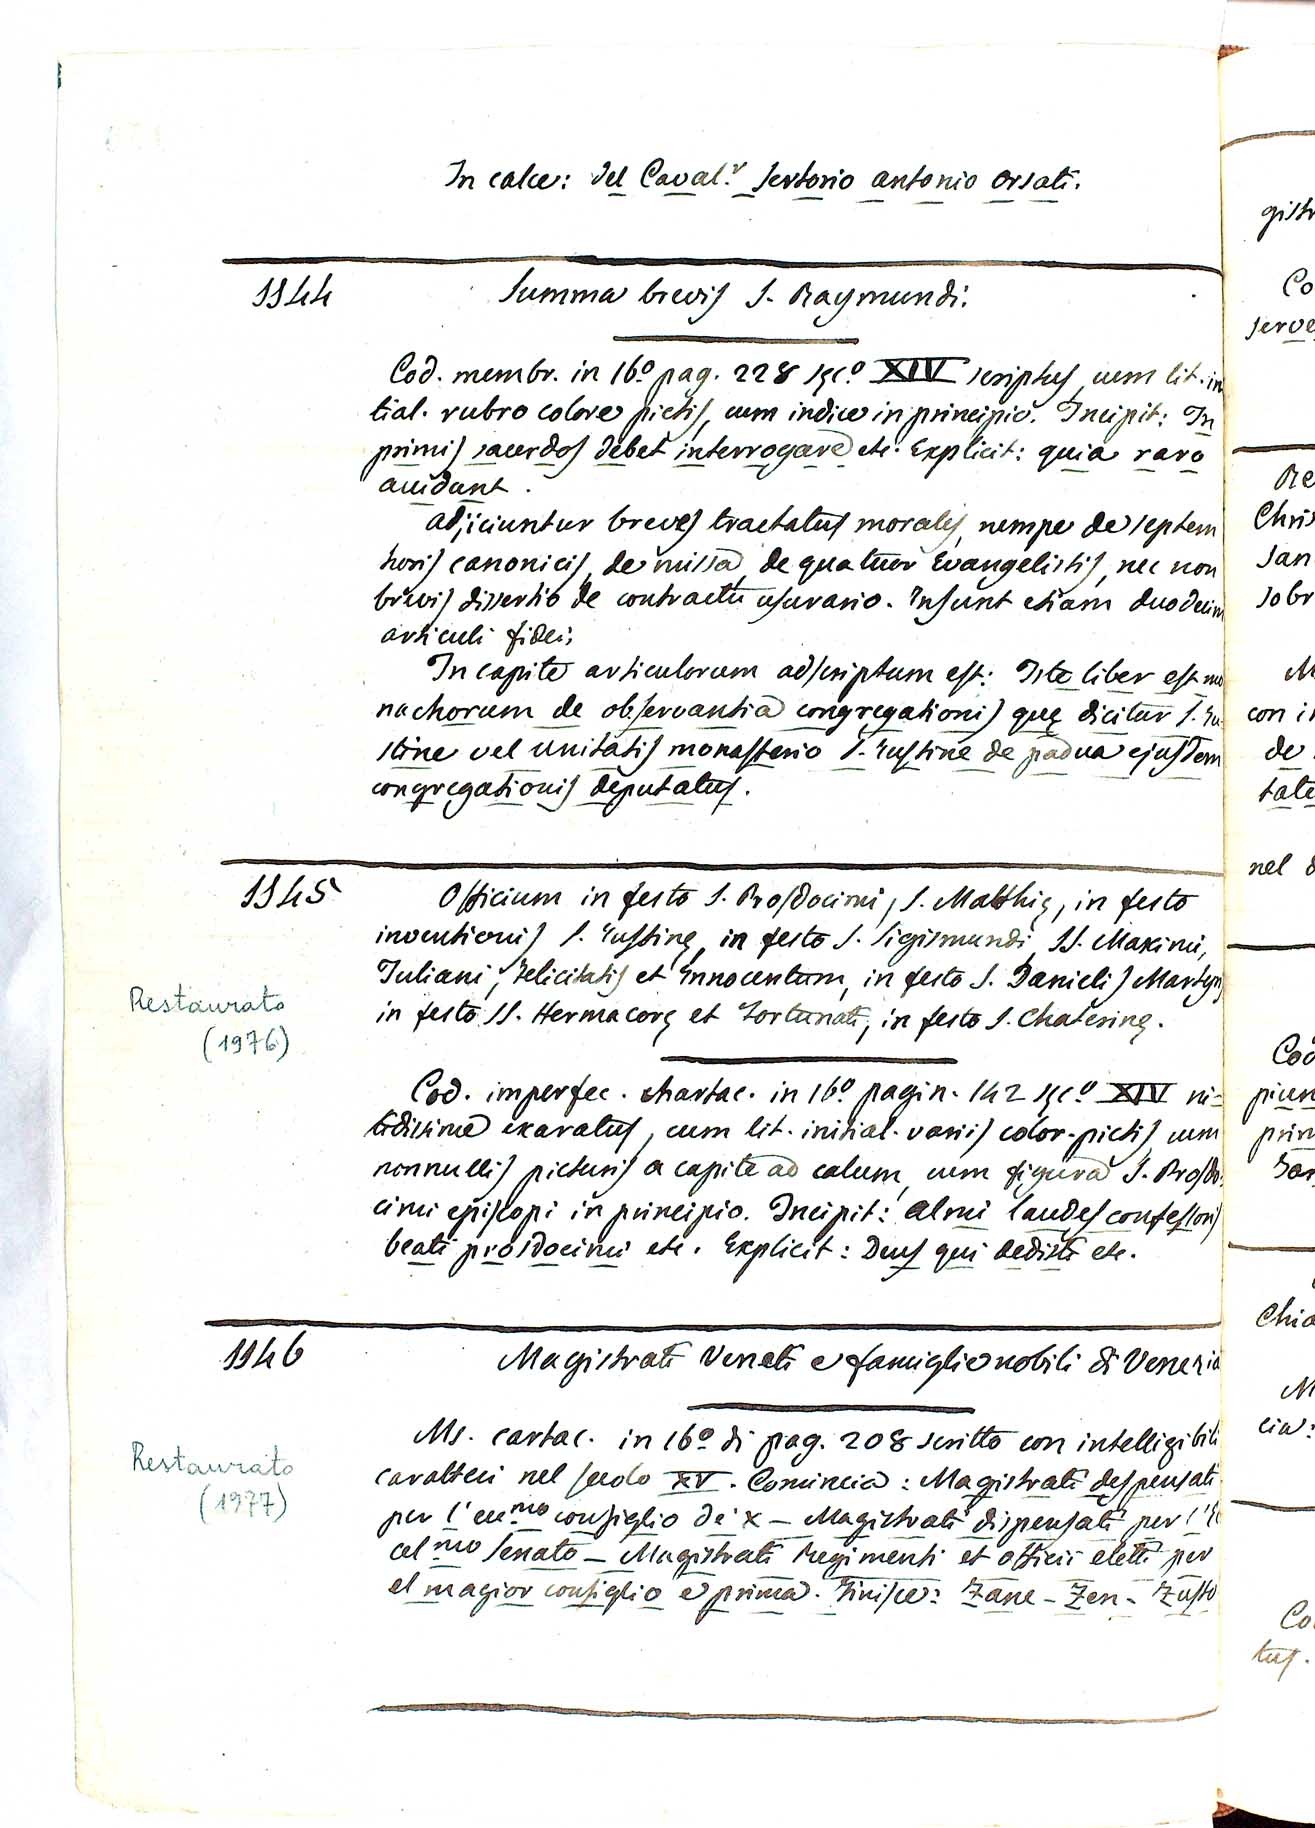 In calce: Del Caval.r Sertorio Antonio Orsati.
1144
Summa brevis S. Raymundi.
Cod. membr. in 16º pag. 228 sęc.º XIV scriptus, cum lit. in
tial. rubro colore pictis, cum indice in principio. Incipit: In
primis sacerdos debet interrogare etc. Explicit: quia raro
accidunt.
Adjiciuntur breves tractatus morales, nempe de septem
horis canonicis, de missa, de quatuor Evangelistis, nec non
brevis dissertio de contractu usurario. Insunt etiam duodecim
articuli fidei;
In capite articulorum adscriptum est: Iste liber est mo
nachorum de observantia congregationis quę dicitur S. Iu-
stine vel unitatis monasterio S. Iustine de padua ejusdem
congregationis deputatus.
1145
Officium in festo S. Prosdocimi, S. Matthię, in festo
inventionis S. Iustinę, in festo S. Sigismundi, SS. Maximi,
Iuliani, Felicitatis et Innocentum, in festo S. Danielis Martyris
in festo SS. Hermacorę et Fortunati, in festo S. Chaterinę.
Restaurato
(1976)
Cod. imperfec. chartac. in 16º pagin. 142 sęc.º XIV ni-
tidissime exaratus, cum lit. initial. variis color. pictis cum
nonnullis picturis a capite ad calcum, cum figura S. Prosdo-
cimi episcopi in principio. Incipit: Almi laudes confessoris
beati prosdocimi etc. Explicit: Deus qui dedisti etc.
1146
Magistrati Veneti e famiglie nobili di Venezia
Ms. cartac. in 16º di pag. 208 scritto con intelligibili
caratteri nel secolo XV. Comincia: Magistrati despensati
per l'ecc.mo consiglio de X — Magistrati dispensati per l'Ec
cel.mo Senato — Magistrati Regimenti et officii eletti per
el magior consiglio e prima. Finisce: Zane - Zen - Zusto
Restaurato
(1977)